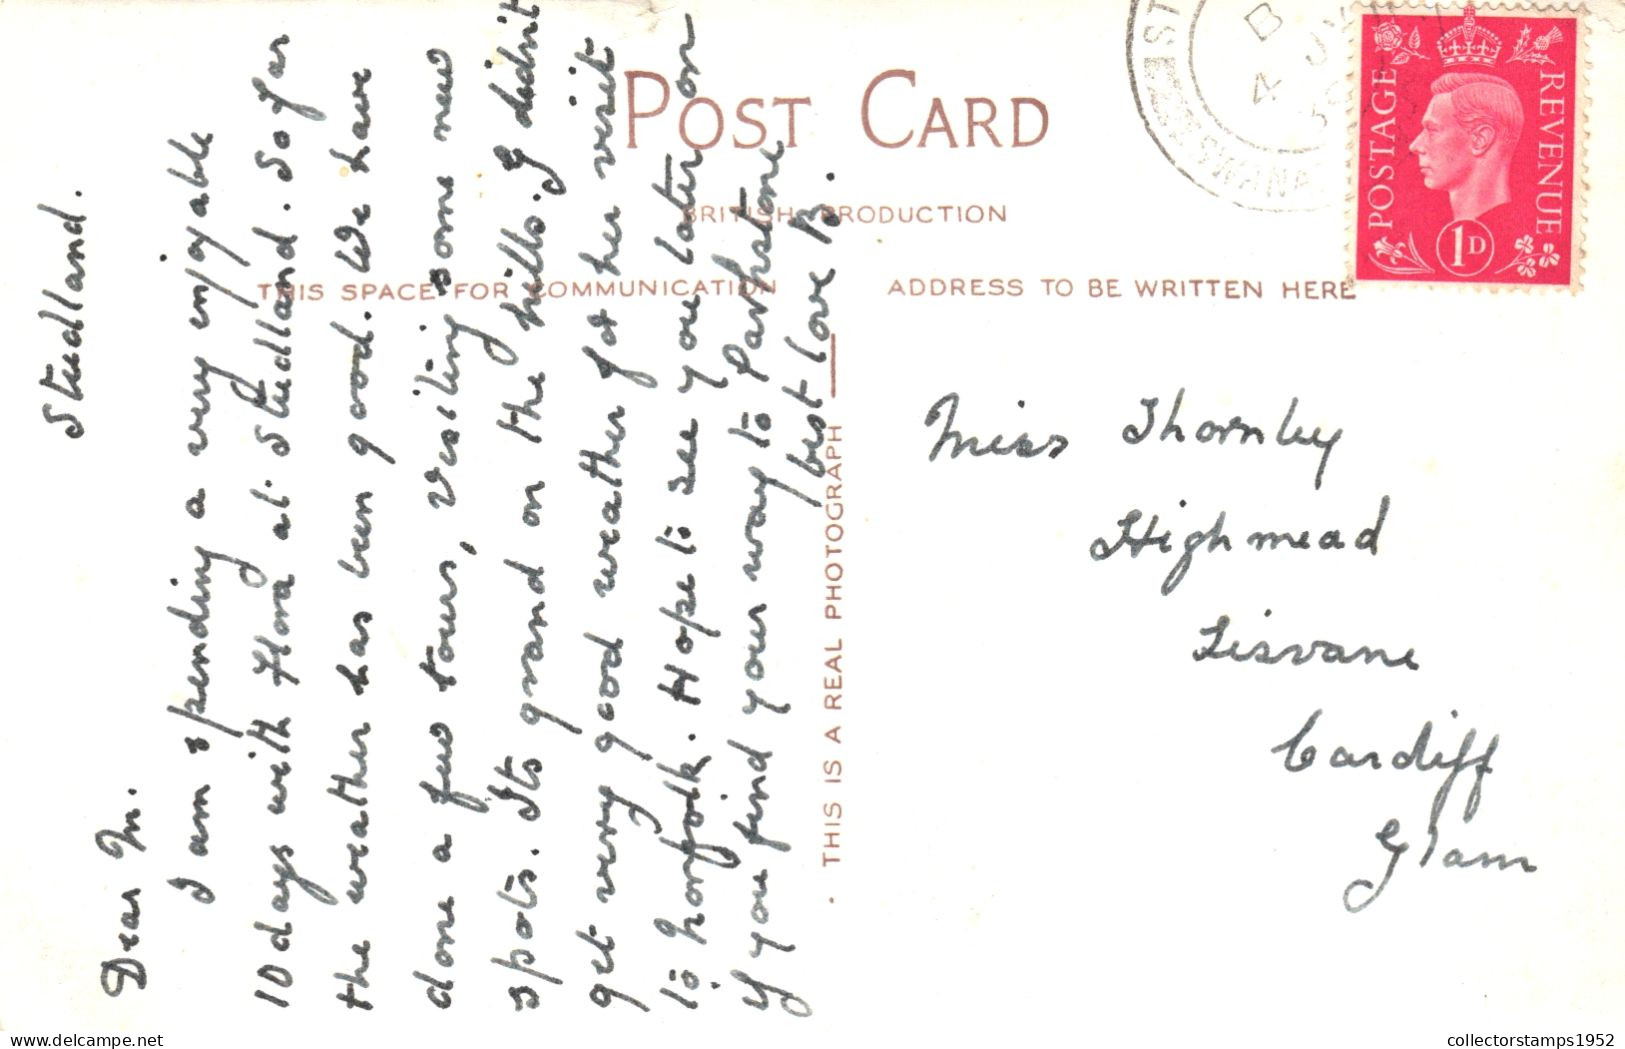 Studland.
Dear M.
I am spending a very enjoyable
10 days with Flora at Studland. So far
the weather has been good. We have
done a few tours, visiting some new
spots. Its grand on the hills. I didn't
get very good weather for her visit
to Norfolk. Hope to see you later on
if you find your way to Parkstone
best love B.
POST CARD
BRITISH PRODUCTION
THIS SPACE FOR COMMUNICATION
ADDRESS TO BE WRITTEN HERE
THIS IS A REAL PHOTOGRAPH
Miss Thornley
Highmead
Lisvane
Cardiff
Glam
POSTAGE
REVENUE
1D
ST
SWANA
B
4 JY
delcampe.net
collectorstamps1952